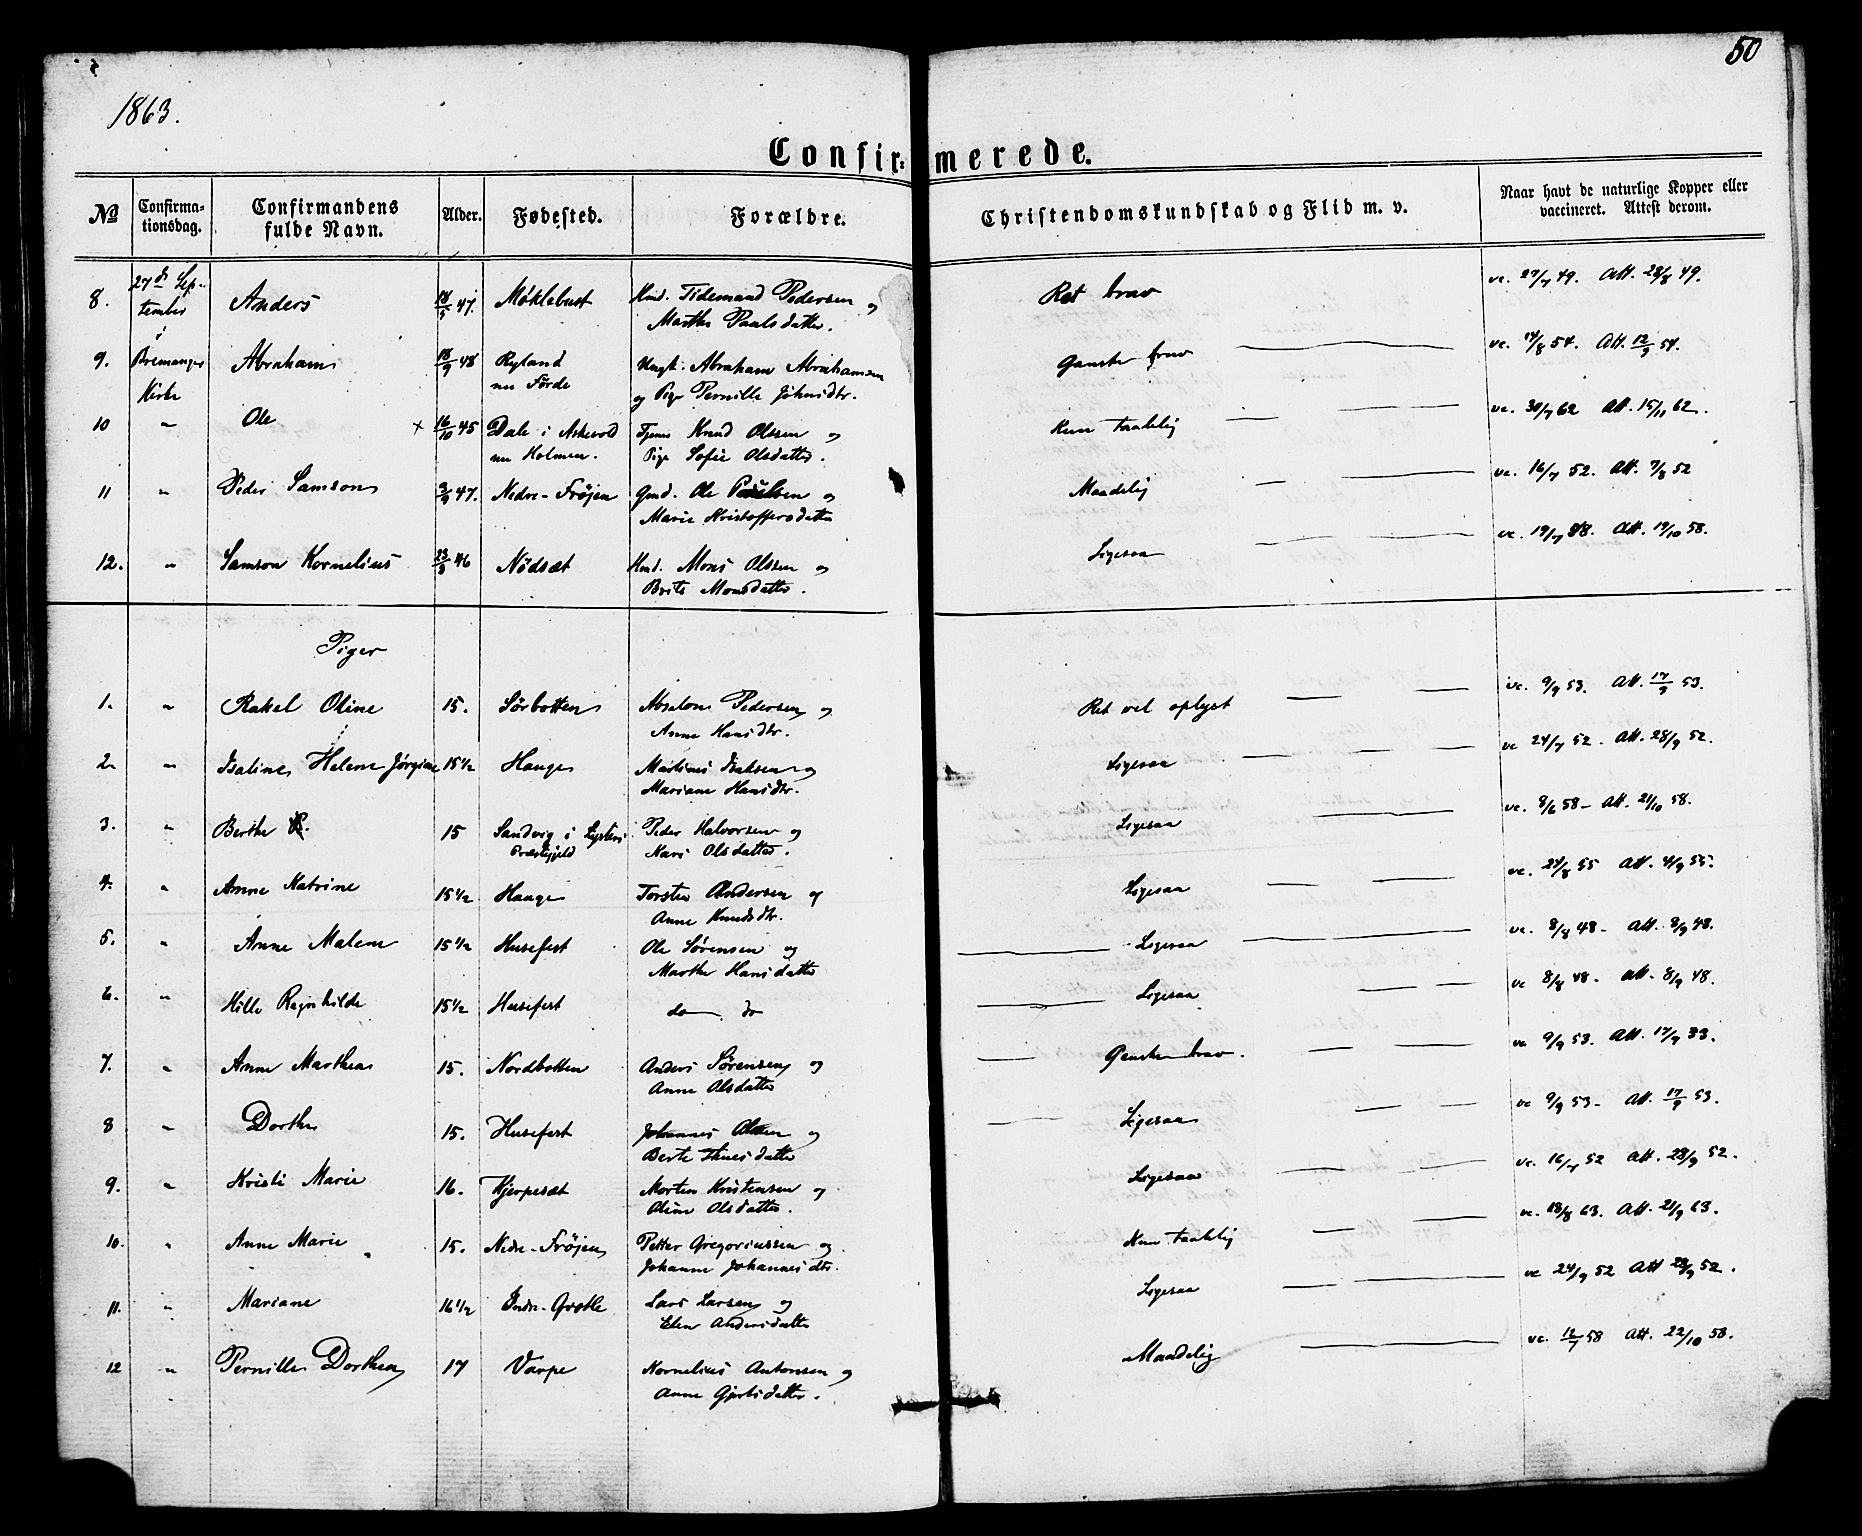 50
1863.
Confir= merede.
No Confirma-tionsdag. Confirmandens fulde Navn. Alder. Fødested. Forældre. Christendomskundskab og Flid m. v. Naar havt de naturlige Kopper eller vaccineret. Attest derom.
8. 27de September i Anders 18/5 47. Møklebust Hmd. Tidemand Pedersen og Marthe Paulsdatter. Ret brav vc. 27/7 49. Att. 28/8 49.
9. Bremanger Kirke Abraham 18/9 48 Ryland nu Førde Ungk. Abraham Abrahamsen og Pige Pernille Johnsdtr. Ganske brav — vc. 17/8 54. Att. 12/9 54.
10 " Ole × 16/10 45 Dale i Askevold nu Holmen. Tjener Knud Olssen og Pige Sofie Olsdatter. Kun taalelig — — vc. 30/7 62 Att. 15/11 62.
11 " Peder Samson 3/9 47. Nedre-Frøjen Gmd. Ole Paulsen og Marie Kristoffersdatter Maadelig — — vc. 16/7 52. Att. 7/8 52
12. " Samson Kornelius 23/3 46 Nødsæt Hmd. Mons Olssen og Brite Monsdatter. Ligesaa — — vc. 19/7 58. Att. 19/10 58.
Piger
1. " Rakel Oline 15. Sørbotten Absalon Pedersen og Anne Hansdtr. Ret vel oplyst — — vc. 9/9 53. Att. 17/9 53.
2. " Isaline Helene Jørgine 15 1/2 Hauge Martinus Isaksen og Mariane Hansdtr. Ligesaa — — vc 24/7 52. Att. 28/9 52.
3. " Berthe 15 Sandvig i Lysters Præstegjeld Peder Halvorsen og Kari Olsdatter. Ligesaa — — vc. 8/6 58 - Att. 21/10 58.
4. " Anne Katrine 15 1/2 Hauge Torsten Andersen og Anne Knudsdtr. Ligesaa — — vc. 24/8 55 Att. 4/9 55.
5. " Anne Malene 15 1/2 Husefest Ole Sørensen og Marthe Hansdatter — Ligesaa — — vc. 8/8 48 - Att. 8/9 48.
6. " Hille Ragnhilde 15 1/2 Husefest do — do — Ligesaa — — vc 8/8 48. Att. 8/9 48.
7. " Anne Marthea 15. Nordbotten Anders Sørensen og Anne Olsdatter — Ganske brav. — — vc 9/9 53. Att. 17/9 53.
8 " Dorthe 15. Husefest Johannes Olsen og Berte Hansdatter — Ligesaa — — vc 9/9 53 - Att. 17/9 53.
9. " Kristi Marie 16. Kjerpesæt Morten Kristensen og Oline Olsdatter. Ligesaa — — vc. 16/7 52 Att. 28/9 52.
10. " Anne Marie 15. Nedre-Frøjen Petter Gregoriussen og Johanne Johannesdtr. Kun taalelig — — vc. 18/8 63. Att. 21/9 63.
11. " Mariane 16 1/2 Indre-Grotle Lars Larsen og Elen Andersdatter Ligesaa — — vc 24/9 52 Att 28/9 52.
12 " Pernille Dorthea 17 Varpe Kornelius Antonsen og Anne Gjertsdatter. Maadelig — vc. 12/7 58 Att. 22/10 58.